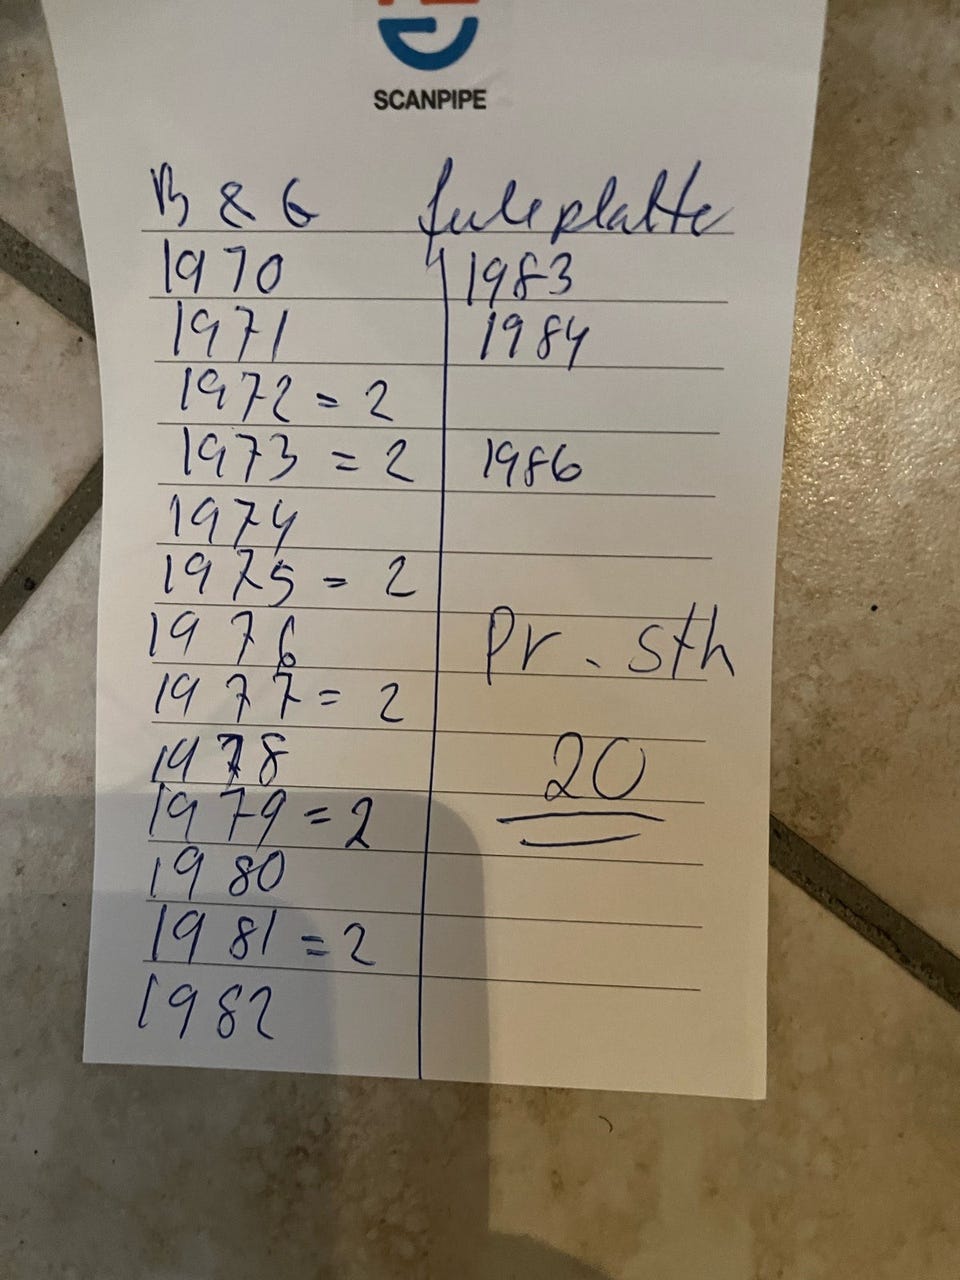 SCANPIPE
B & G Juleplatte
1970
1971
1972 = 2
1973 = 2
1974
1975 = 2
1976
1977 = 2
1978
1979 = 2
1980
1981 = 2
1982
1983
1984
1986
Pr. sth
20